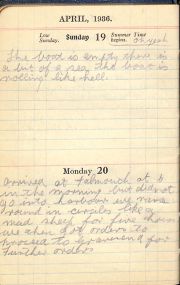 APRIL, 1936.
Low Sunday. Sunday 19 Summer Time begins. Oh yeah
The boat is empty there is
a bit of a sea. The boat is
rolling like hell.
Monday 20
arrived at Falmouth at 6
in the morning but did not
go into harbour we
round in circles like a
mad sheep for five hours
we then got orders to
proceed to Gravesend for
further orders